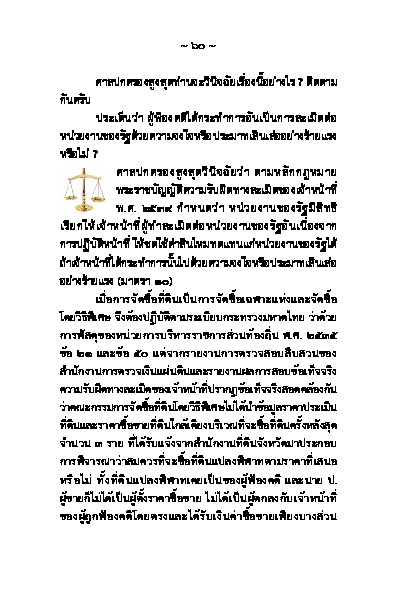 ~ ๖๐ ~
ศาลปกครองสูงสุดท่านจะวินิจฉัยเรื่องนี้อย่างไร ? ติดตาม
กันครับ
ประเด็นว่า ผู้ฟ้องคดีได้กระทำการอันเป็นการละเมิดต่อ
หน่วยงานของรัฐด้วยความจงใจหรือประมาทเลินเล่ออย่างร้ายแรง
หรือไม่ ?
ศาลปกครองสูงสุดวินิจฉัยว่า ตามหลักกฎหมาย
พระราชบัญญัติความรับผิดทางละเมิดของเจ้าหน้าที่
พ.ศ. ๒๕๓๙ กำหนดว่า หน่วยงานของรัฐมีสิทธิ
เรียกให้เจ้าหน้าที่ผู้ทำละเมิดต่อหน่วยงานของรัฐอันเนื่องจาก
การปฏิบัติหน้าที่ ให้ชดใช้ค่าสินไหมทดแทนแก่หน่วยงานของรัฐได้
ถ้าเจ้าหน้าที่ได้กระทำการนั้นไปด้วยความจงใจหรือประมาทเลินเล่อ
อย่างร้ายแรง (มาตรา ๑๐)
เมื่อการจัดซื้อที่ดินเป็นการจัดซื้อเฉพาะแห่งและจัดซื้อ
โดยวิธีพิเศษ จึงต้องปฏิบัติตามระเบียบกระทรวงมหาดไทย ว่าด้วย
การพัสดุของหน่วยการบริหารราชการส่วนท้องถิ่น พ.ศ. ๒๕๓๕
ข้อ ๒๑ และข้อ ๕๐ แต่จากรายงานการตรวจสอบสืบสวนของ
สำนักงานการตรวจเงินแผ่นดินและรายงานผลการสอบข้อเท็จจริง
ความรับผิดทางละเมิดของเจ้าหน้าที่ปรากฏข้อเท็จจริงสอดคล้องกัน
ว่าคณะกรรมการจัดซื้อที่ดินโดยวิธีพิเศษไม่ได้นำข้อมูลราคาประเมิน
ที่ดินและราคาซื้อขายที่ดินใกล้เคียงบริเวณที่จะซื้อที่ดินครั้งหลังสุด
จำนวน ๓ ราย ที่ได้รับแจ้งจากสำนักงานที่ดินจังหวัดมาประกอบ
การพิจารณาว่าสมควรที่จะซื้อที่ดินแปลงพิพาทตามราคาที่เสนอ
หรือไม่ ทั้งที่ดินแปลงพิพาทเคยเป็นของผู้ฟ้องคดี และนาย ป.
ผู้ขายก็ไม่ได้เป็นผู้ตั้งราคาซื้อขาย ไม่ได้เป็นผู้ตกลงกับเจ้าหน้าที่
ของผู้ถูกฟ้องคดีโดยตรงและได้รับเงินค่าซื้อขายเพียงบางส่วน